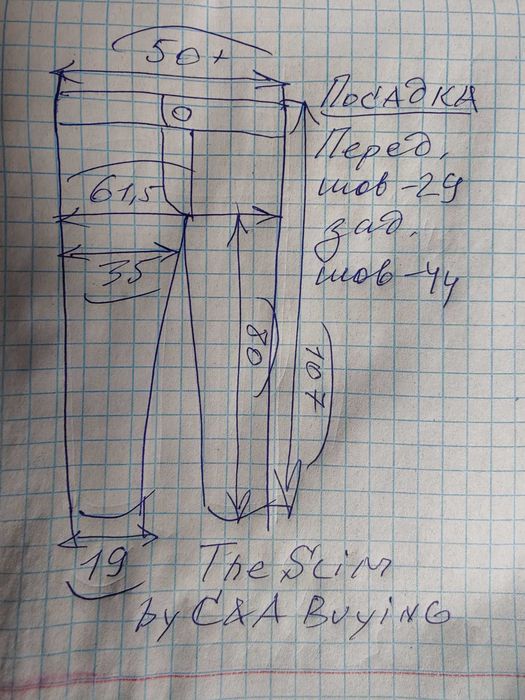 50+
ПОСАДКА
Перед.
шов-29
зад.
шов-44
61,5
35
80
107
19
The Slim
by C&A Buying